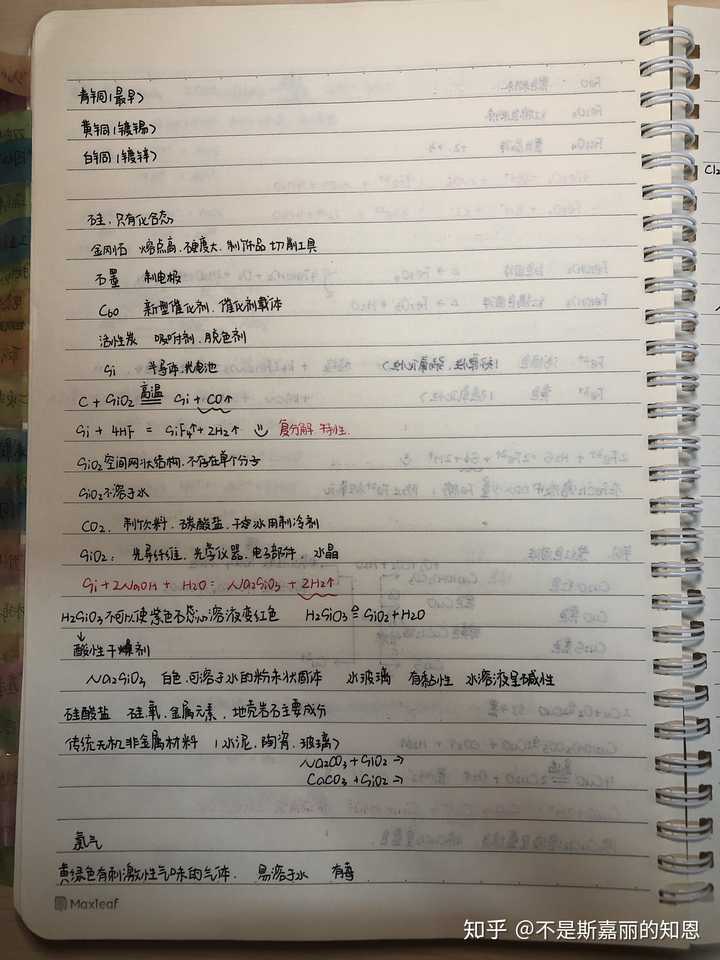 青铜(最早)
黄铜(镀锡)
白铜(镀锌)
硅,只有化合态
金刚石 熔点高,硬度大,制饰品 切割工具
石墨 制电极
C60 新型催化剂,催化剂载体
活性炭 吸附剂,脱色剂
Si 半导体,光电池
C + SiO2 高温 Si + CO↑
Si + 4HF = SiF4↑ + 2H2↑ 复分解 特性.
SiO2空间网状结构,不存在单个分子
SiO2不溶于水
CO2, 制饮料,碳酸盐,干冰用制冷剂
SiO2: 光导纤维,光学仪器,电子部件,水晶
Si + 2NaOH + H2O = Na2SiO3 + 2H2↑
H2SiO3不可以使紫色石蕊溶液变红色 H2SiO3 ≙ SiO2 + H2O
↓
酸性干燥剂
Na2SiO3 白色,可溶于水的粉末状固体 水玻璃 有黏性 水溶液呈碱性
硅酸盐 硅,氧,金属元素,地壳岩石主要成分
传统无机非金属材料 (水泥,陶瓷,玻璃)
Na2CO3 + SiO2 →
CaCO3 + SiO2 →
氯气
黄绿色有刺激性气味的气体. 易溶于水 有毒
Maxleaf
知乎 @不是斯嘉丽的知恩